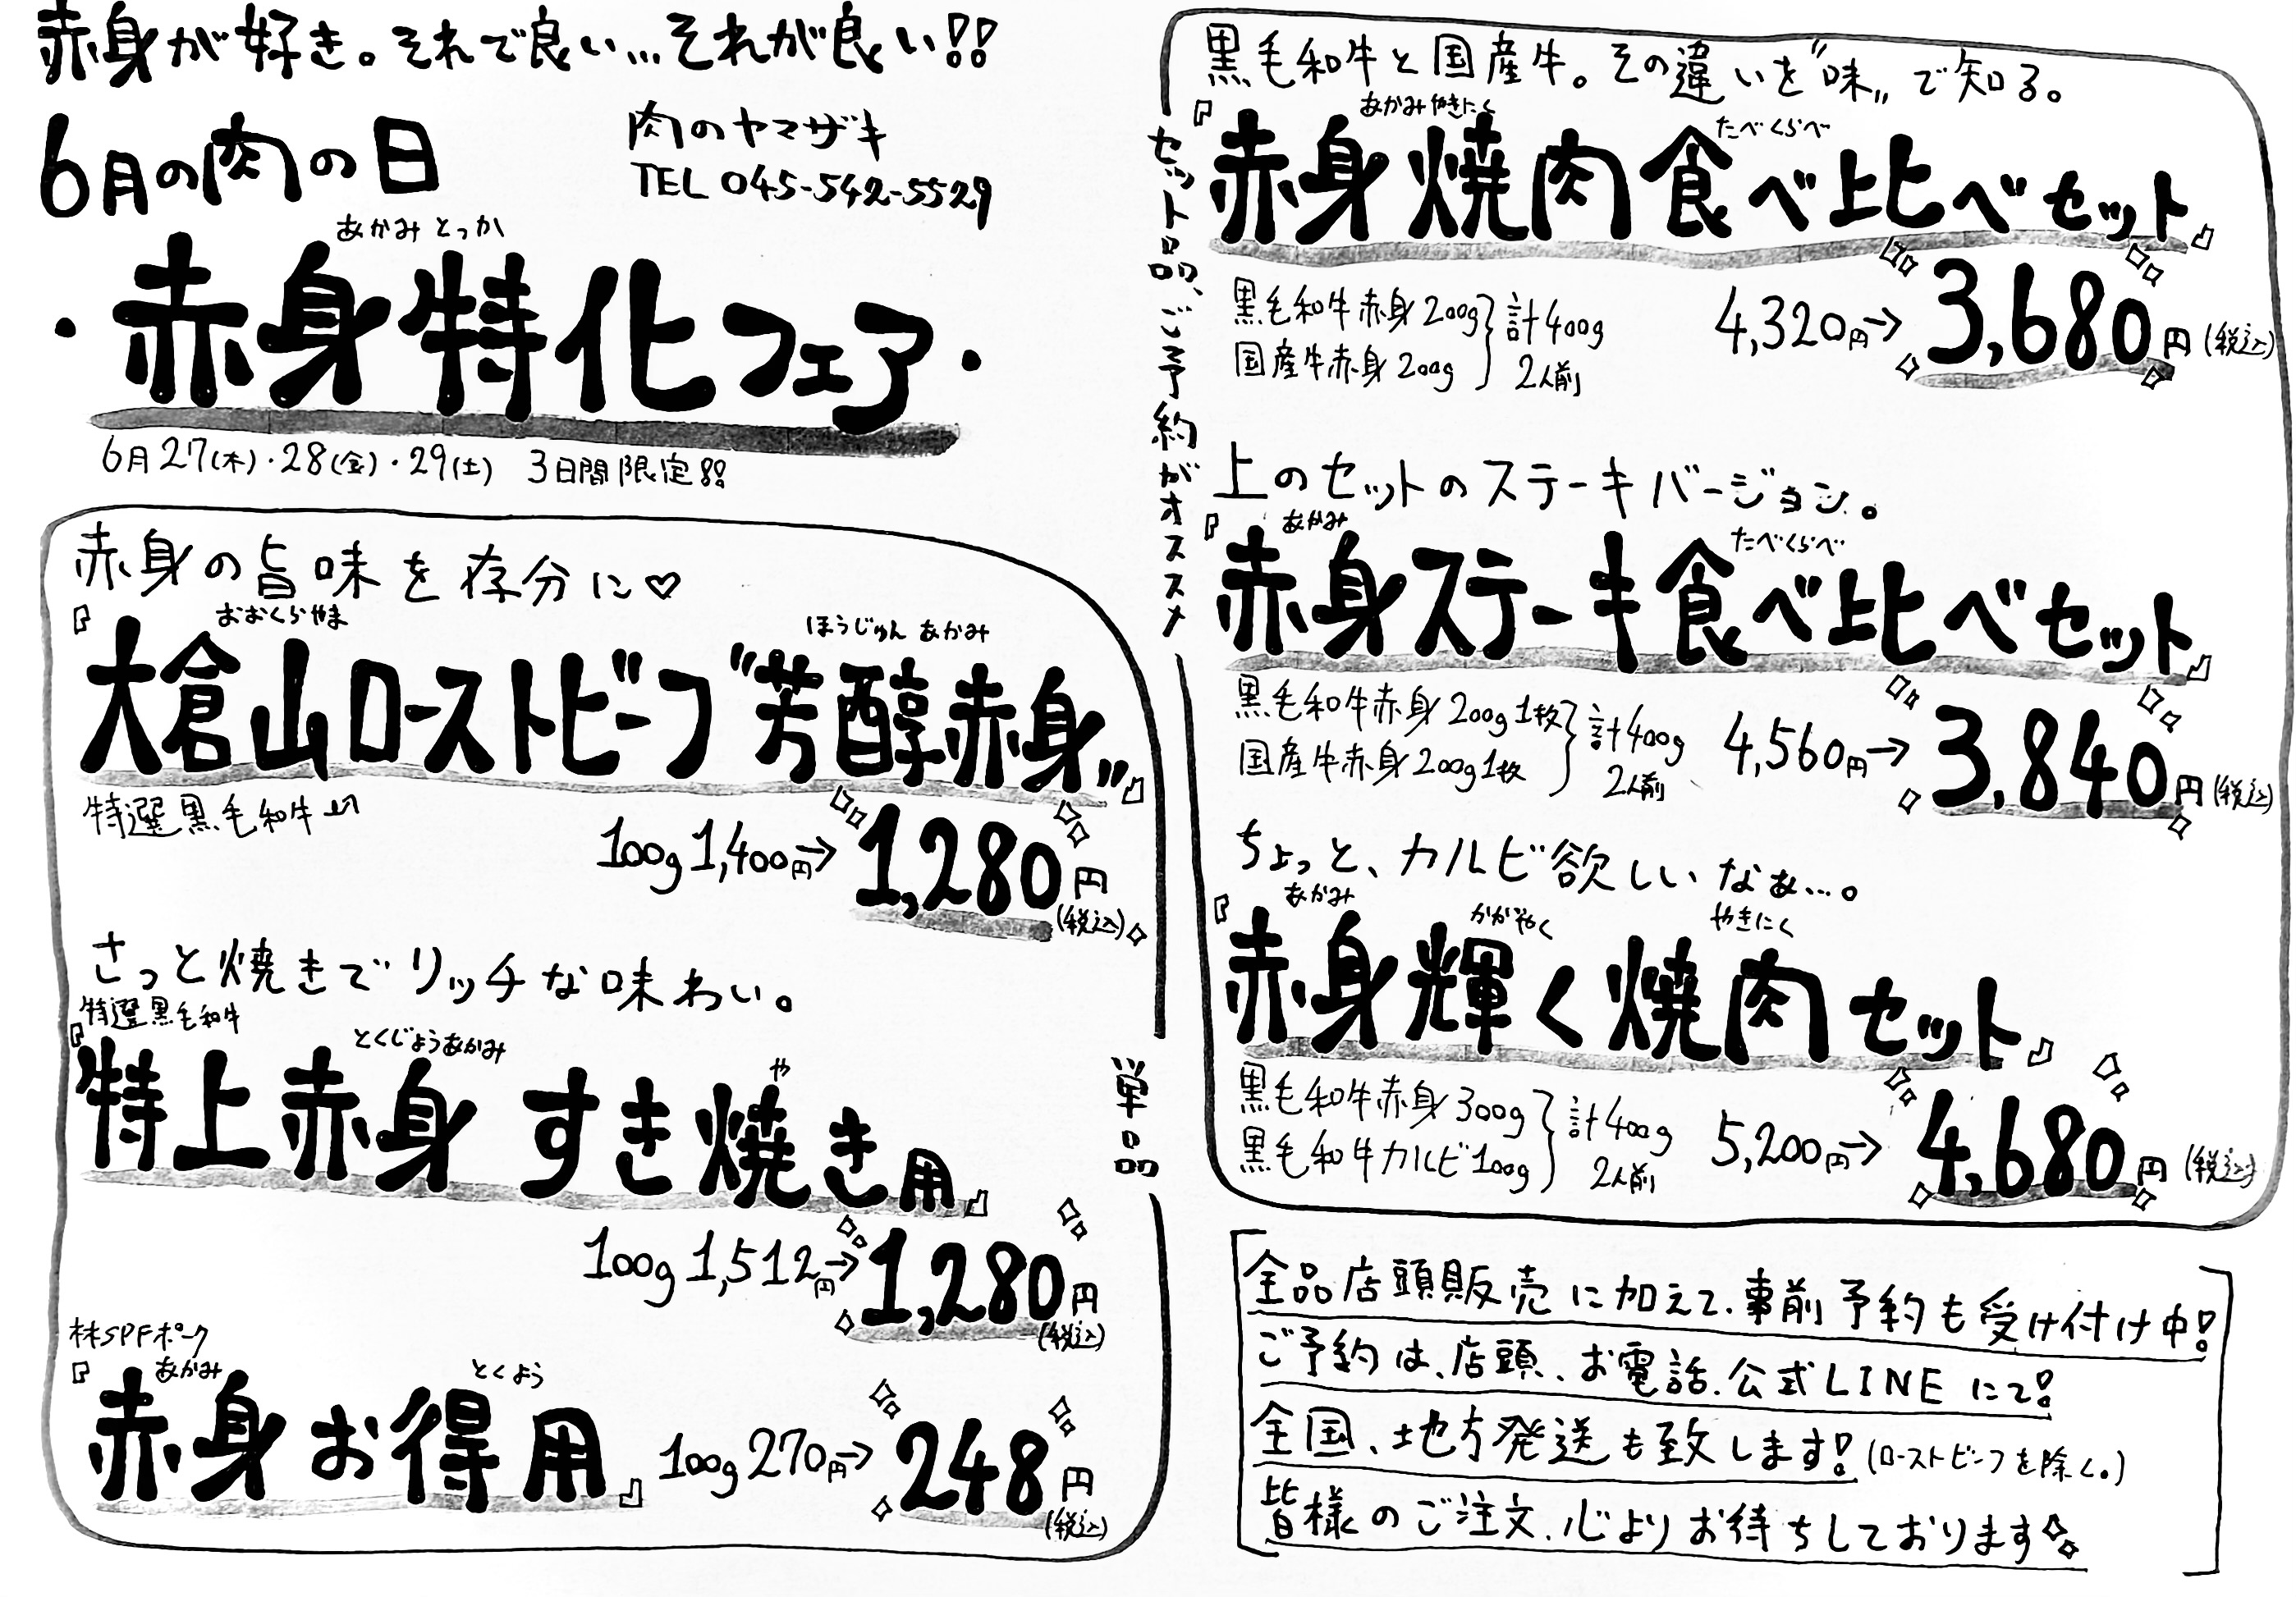 赤身が好き。それで良い…それが良い!!
6月の肉の日
肉のヤマザキ
TEL 045-542-5529
あかみ とっか
・赤身特化フェア・
6月27(木)・28(金)・29(土) 3日間限定!!
赤身の旨味を存分に♡
おおくらやま ほうじゅん あかみ
『大倉山ローストビーフ"芳醇赤身"』
特選黒毛和牛
100g 1,400円→1,280円
(税込)
さっと焼きでリッチな味わい。
特選黒毛和牛
とくじょうあかみ や
『特上赤身 すき焼き用』
100g 1,512円→1,280円
(税込)
林SPFポーク
あかみ とくよう
『赤身お得用』 100g 270円→248円
(税込)
単品
セット品、ご予約がオススメ
黒毛和牛と国産牛。その違いを"味"で知る。
あかみ やきにく たべくらべ
『赤身焼肉食べ比べセット』
黒毛和牛赤身 200g
国産牛赤身 200g
計400g
2人前
4,320円→3,680円(税込)
上のセットのステーキバージョン。
あかみ たべくらべ
『赤身ステーキ食べ比べセット』
黒毛和牛赤身 200g 1枚
国産牛赤身 200g 1枚
計400g
2人前
4,560円→3,840円(税込)
ちょっと、カルビ欲しいなぁ…。
あかみ かがやく やきにく
『赤身輝く焼肉セット』
黒毛和牛赤身 300g
黒毛和牛カルビ 100g
計400g
2人前
5,200円→4,680円(税込)
全品店頭販売に加えて、事前予約も受け付け中!
ご予約は、店頭、お電話、公式LINEにて!
全国、地方発送も致します!(ローストビーフを除く。)
皆様のご注文、心よりお待ちしております